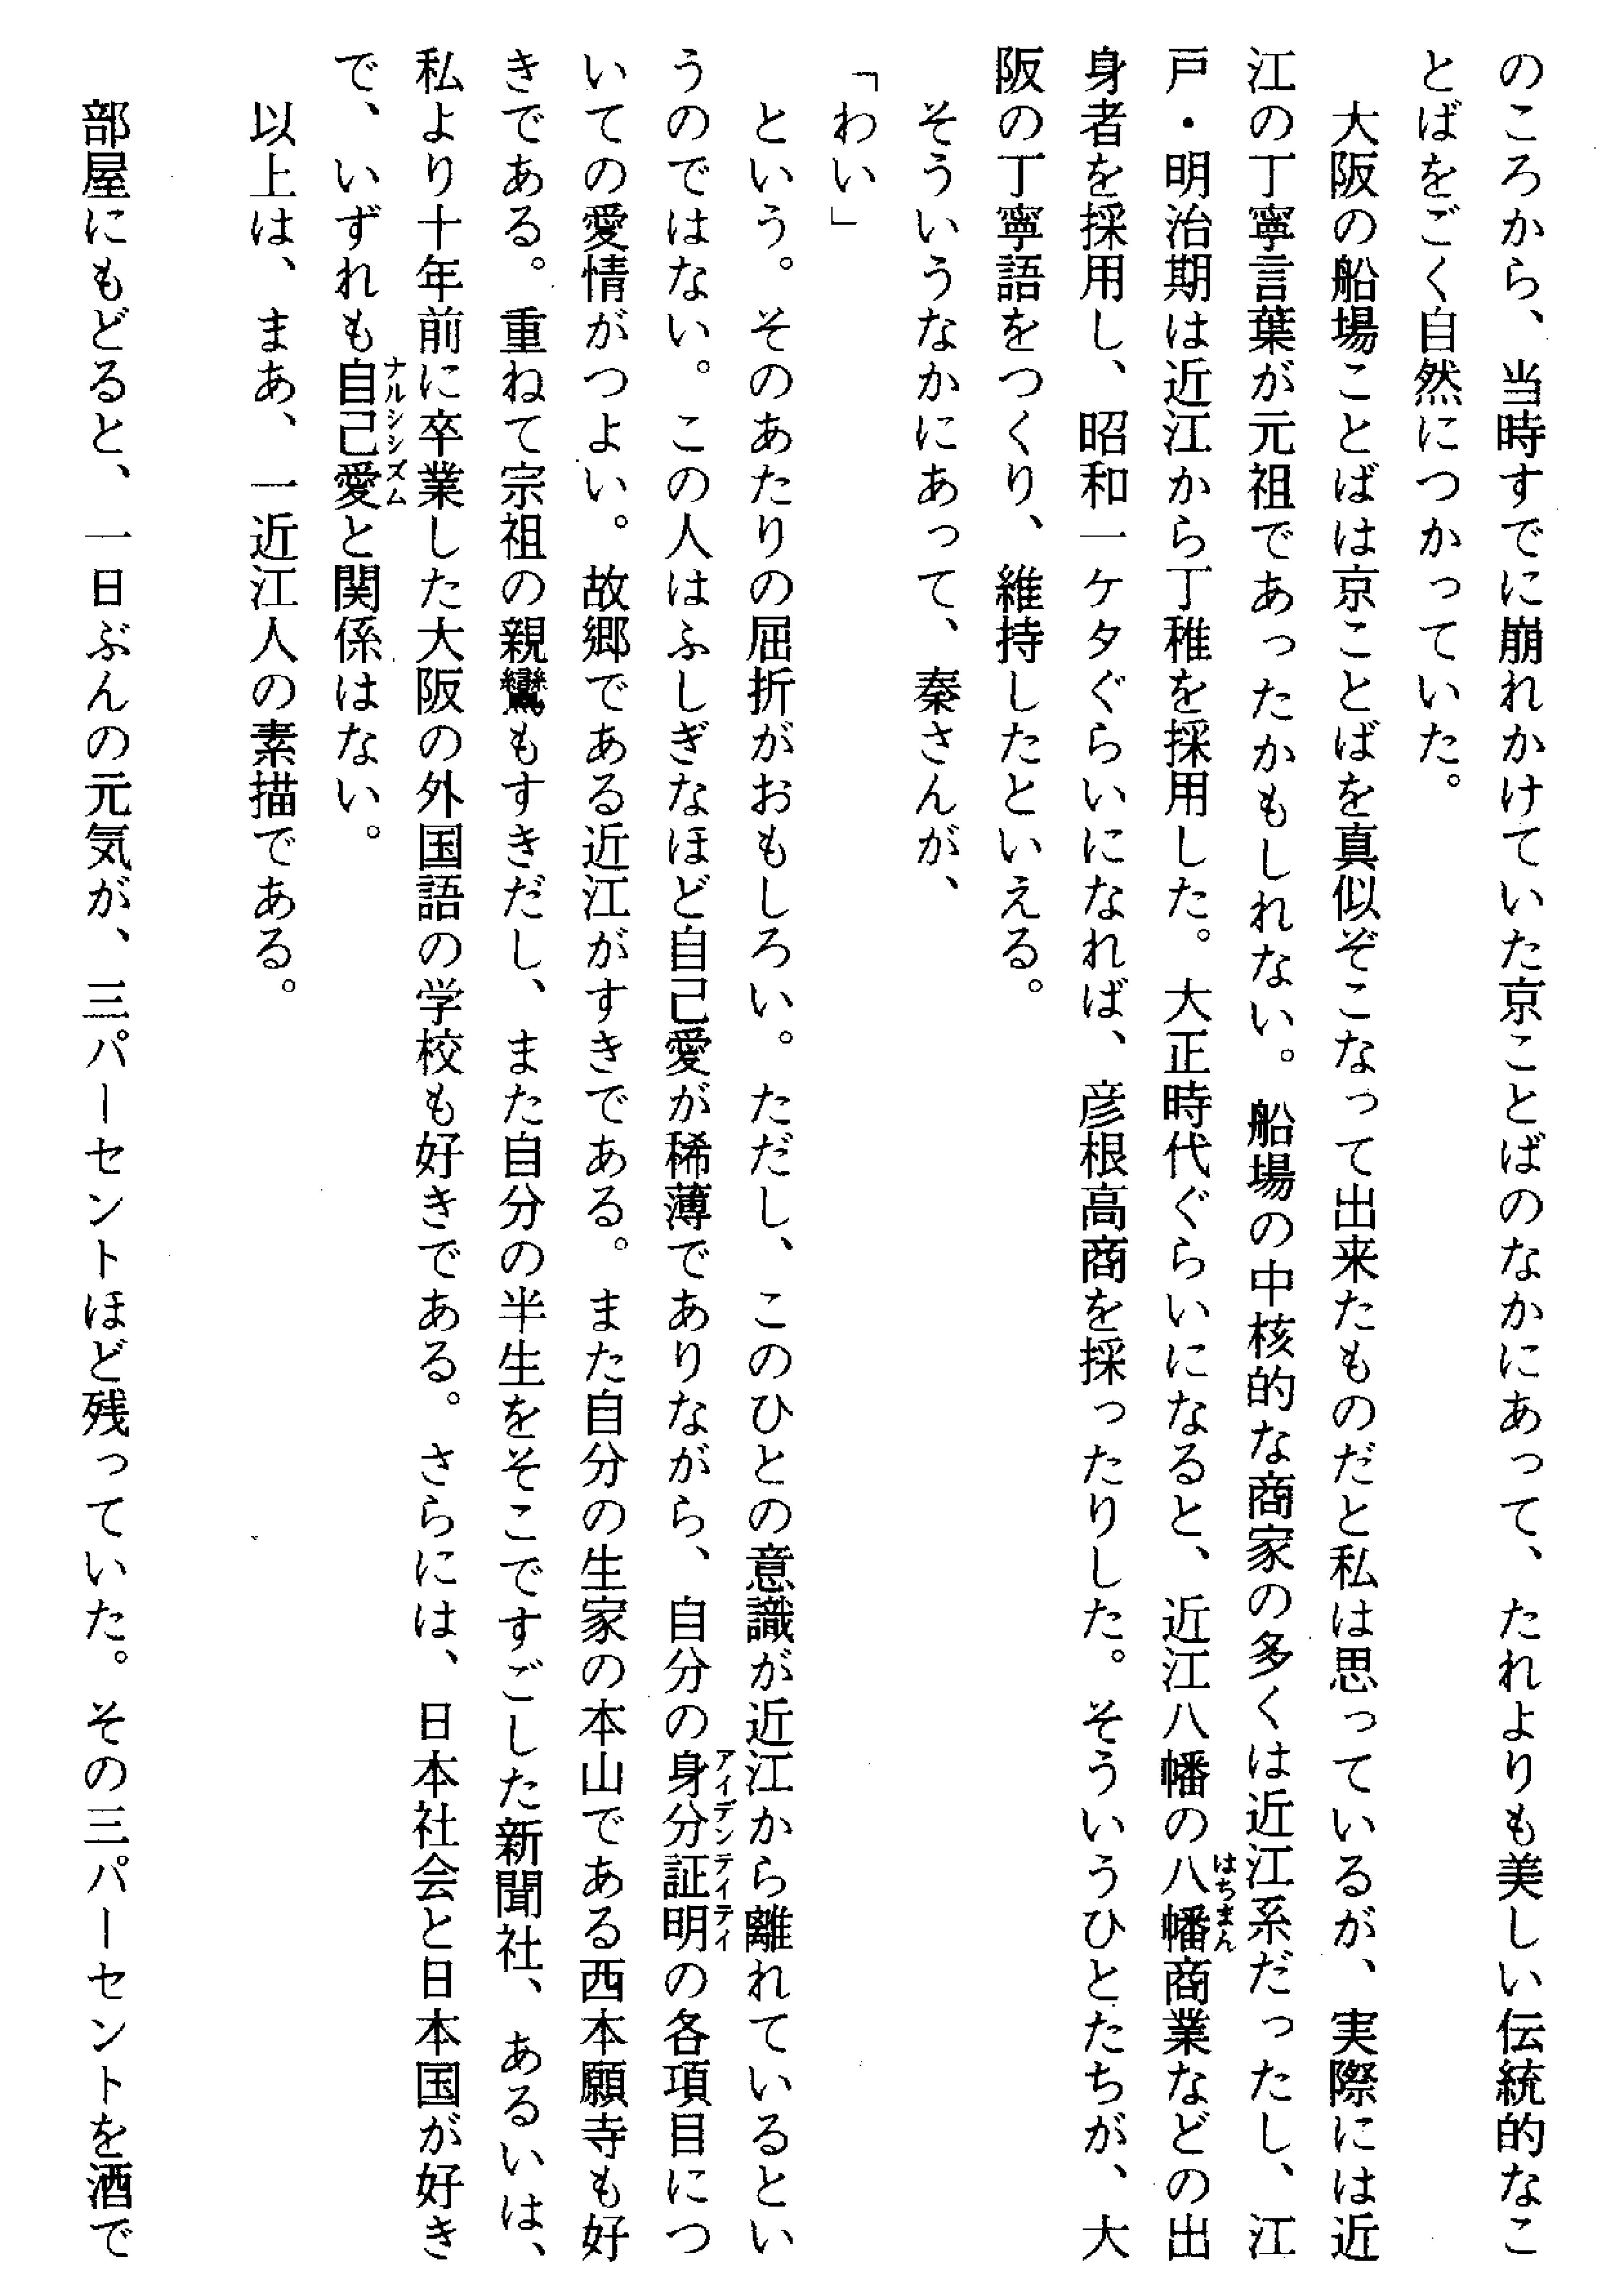 のころから、当時すでに崩れかけていた京ことばのなかにあって、たれよりも美しい伝統的なこ
とばをごく自然につかっていた。
　大阪の船場ことばは京ことばを真似ぞこなって出来たものだと私は思っているが、実際には近
江の丁寧言葉が元祖であったかもしれない。船場の中核的な商家の多くは近江系だったし、江
戸・明治期は近江から丁稚を採用した。大正時代ぐらいになると、近江八幡の八幡商業などの出
はちまん
身者を採用し、昭和一ケタぐらいになれば、彦根高商を採ったりした。そういうひとたちが、大
阪の丁寧語をつくり、維持したといえる。
　そういうなかにあって、秦さんが、
「わい」
　という。そのあたりの屈折がおもしろい。ただし、このひとの意識が近江から離れているとい
うのではない。この人はふしぎなほど自己愛が稀薄でありながら、自分の身分証明の各項目につ
アイデンティティ
いての愛情がつよい。故郷である近江がすきである。また自分の生家の本山である西本願寺も好
きである。重ねて宗祖の親鸞もすきだし、また自分の半生をそこですごした新聞社、あるいは、
私より十年前に卒業した大阪の外国語の学校も好きである。さらには、日本社会と日本国が好き
で、いずれも自己愛と関係はない。
ナルシシズム
　以上は、まあ、一近江人の素描である。
　部屋にもどると、一日ぶんの元気が、三パーセントほど残っていた。その三パーセントを酒で